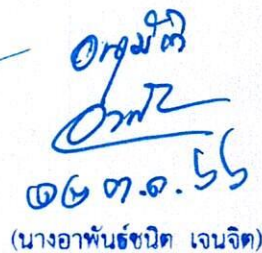 อนุมัติ
๑๒ ต.ค. ๖๖
(นางอาพันธ์ชนิต เจนจิต)